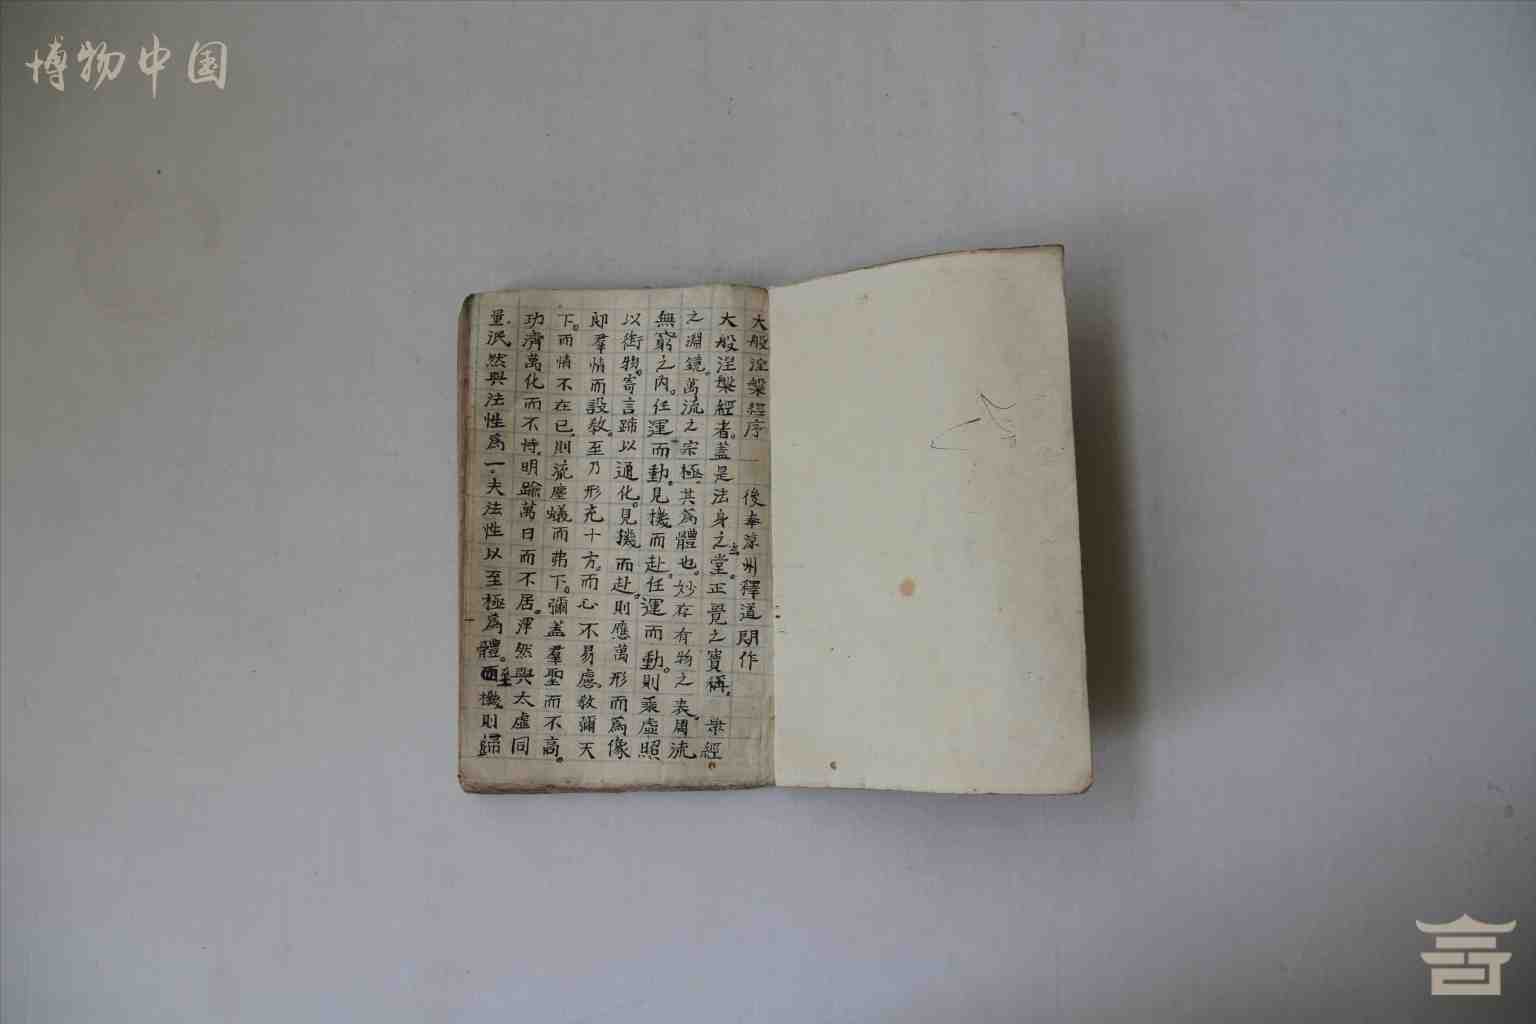 博物中国
大般涅槃經序 後奉涼州釋道朗作
大般涅槃經者。蓋是法身之玄堂。正覺之寶稱。眾經
之淵鏡。萬流之宗極。其為體也。妙存有物之表。周流
無窮之內。任運而動。見機而赴。任運而動。則乘虛照
以御物。寄言蹄以通化。見機而赴。則應萬形而為像
即羣情而設教。至乃形充十方。而心不易慮。教彌天
下。而情不在已。則流塵蟻而弗下。彌蓋羣聖而不高。
功濟萬化而不恃。明踰萬日而不居。渾然與太虛同
量。泯然與法性為一。夫法性以至極為體。至極則歸